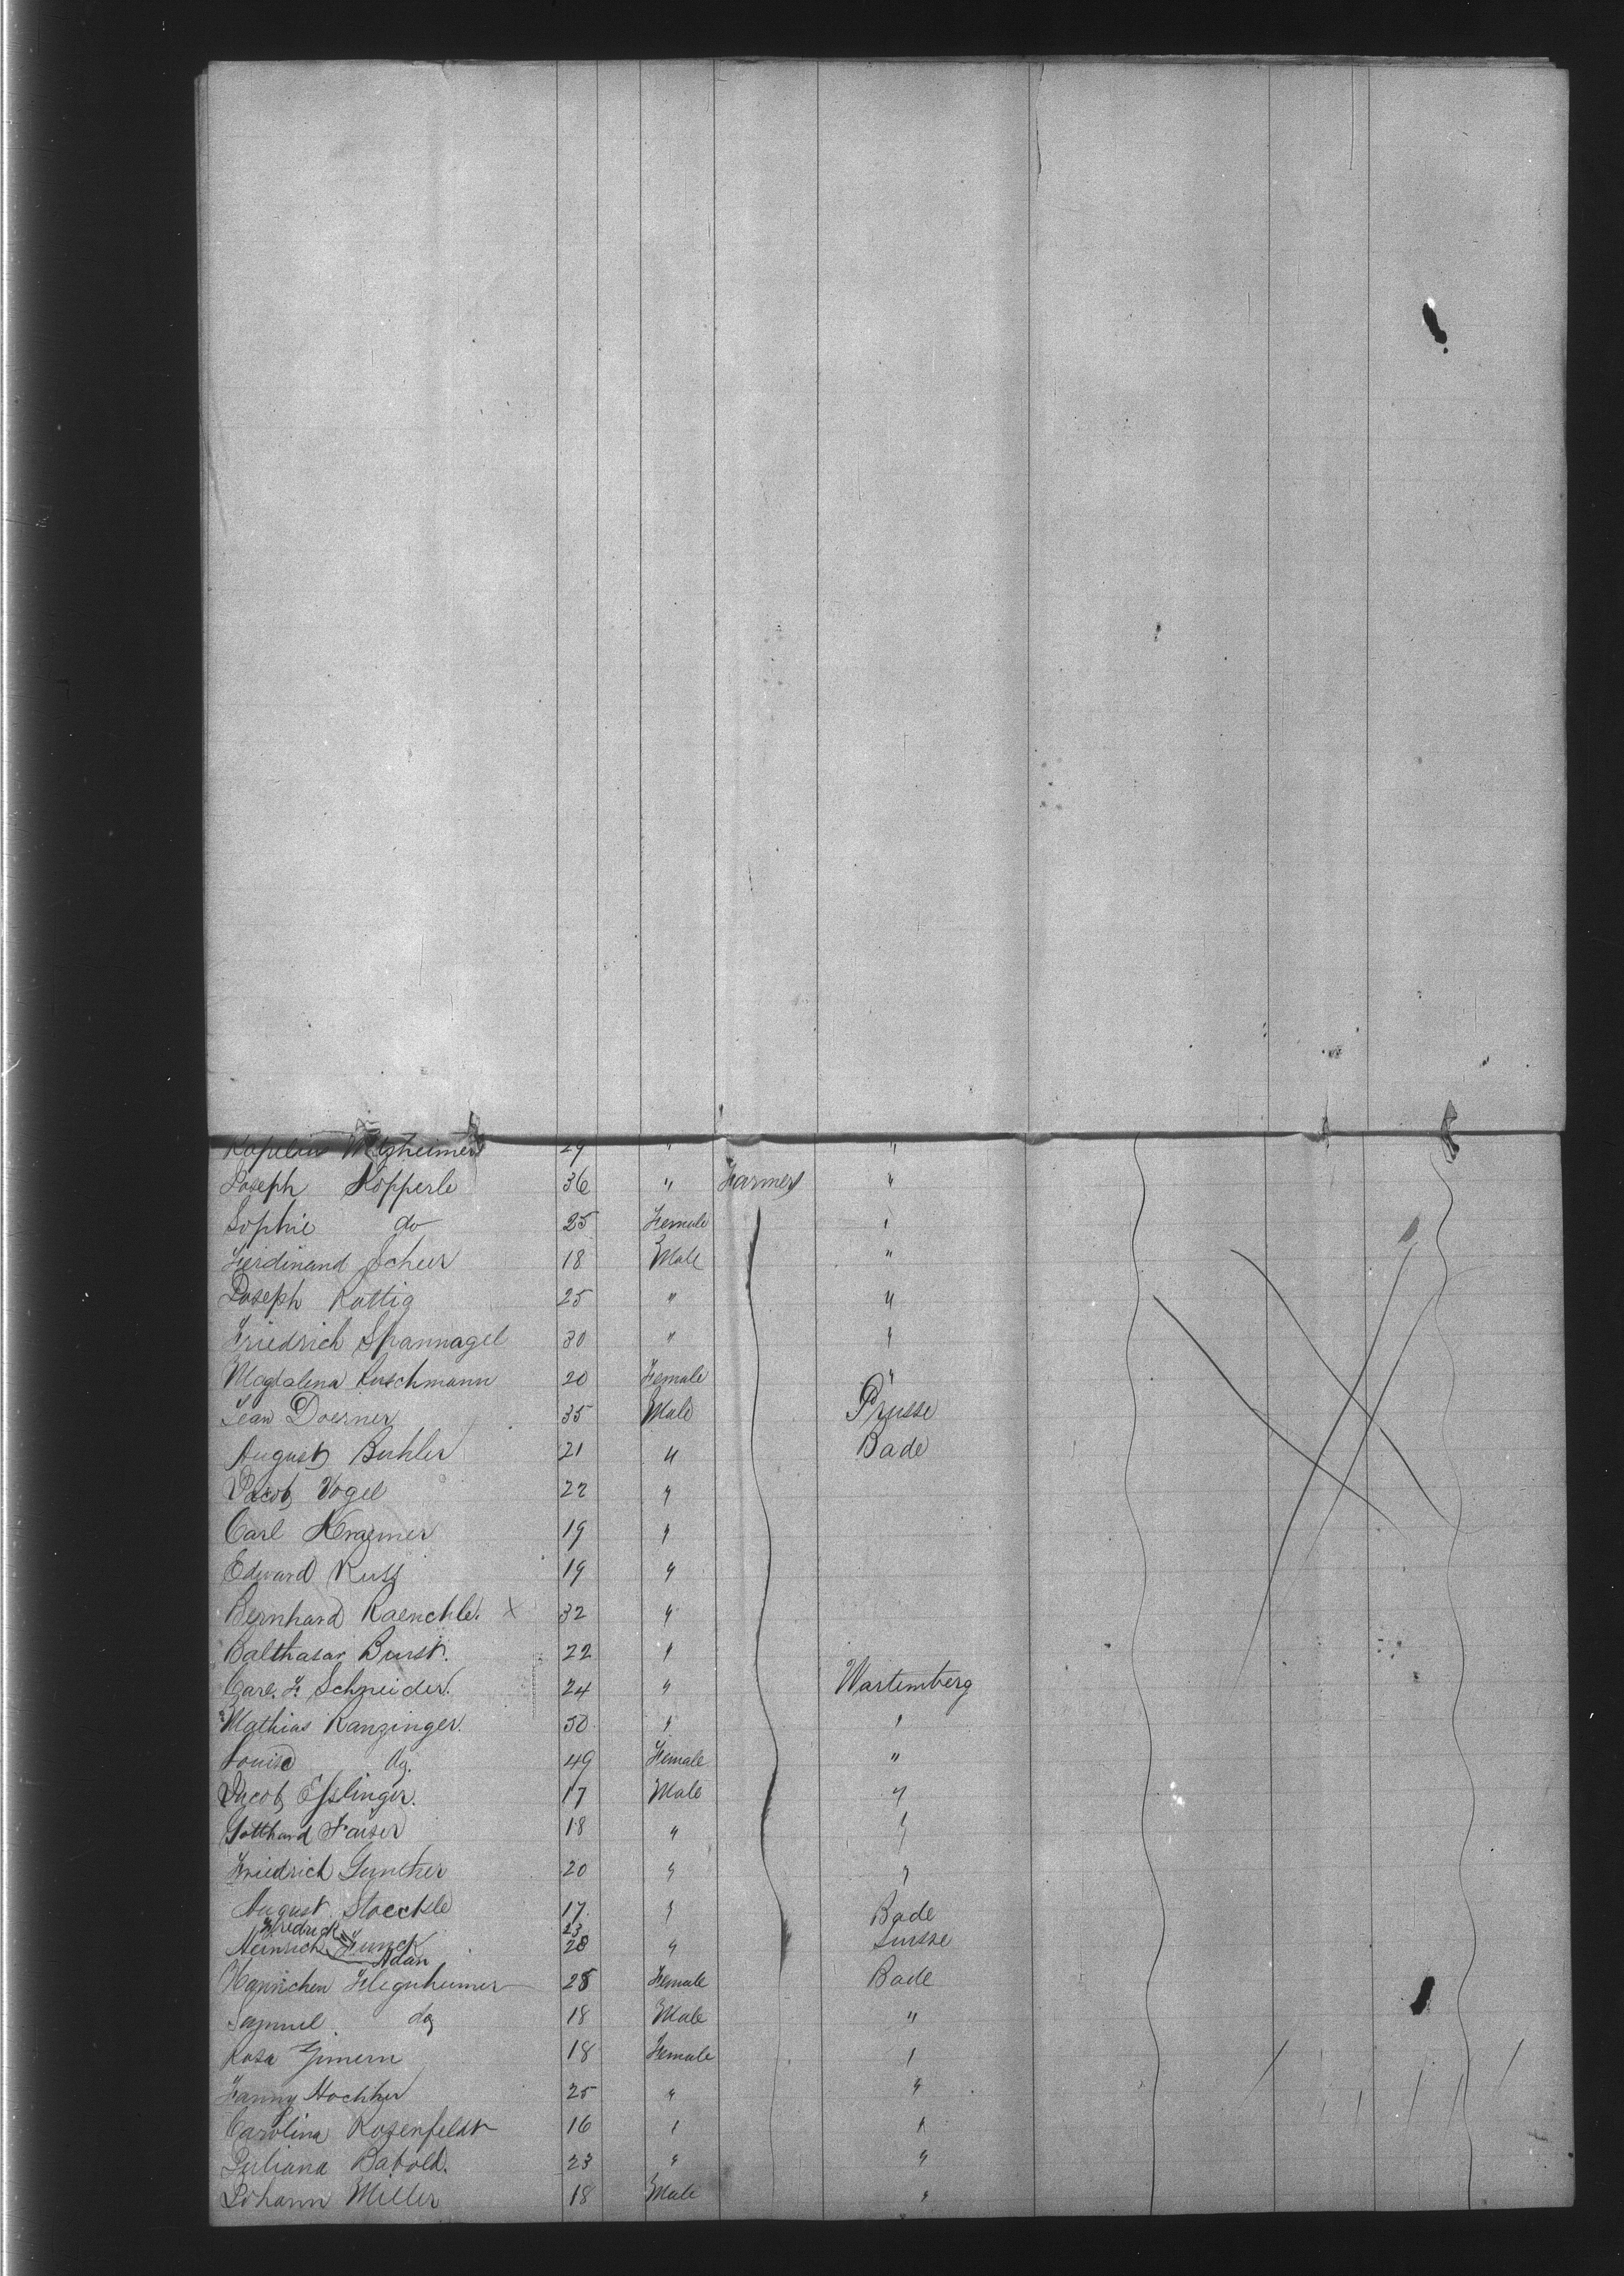 Metzheimer 29 " "
Joseph Kopperle 36 " Farmer "
Sophie do 25 Female "
Ferdinand Scheer 18 Male "
Joseph Rottig 25 " "
Friedrich Spannagel 30 " "
Magdalena Ruschmann 20 Female "
Jean Doerner 35 Male Prusse
August Buhler 21 " Bade
Jacob Vogel 22 "
Carl Kraemer 19 "
Edward Russ 19 "
Bernhard Kaenchle. X 32 "
Balthasar Burst. 22 "
Carl. F. Schneider. 24 " Wurtemberg
Mathias Ranzinger. 50 " "
Louise do. 49 Female "
Jacob Esslinger. 17 Male "
Gotthard Faiser 18 " "
Friedrich Gunther 20 " "
August Stoeckle 17. " Bade
Fredrick 23
Heinrich Funck 28 " Suisse
Adam
Hannchen Flegenheimer 28 Female Bade
Samuel do 18 Male "
Rosa 18 Female "
Fanny 25 " "
Carolina Rosenfeldt 16 " "
Juliana Babold. 23 " "
Johann Miller 18 Male "